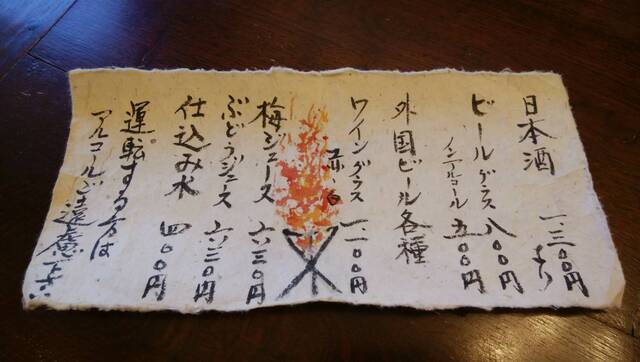 日本酒 一、三〇〇円より
ビール グラス 八〇〇円
ノンアルコール 五〇〇円
外国ビール各種
ワイングラス 赤 白 一一〇〇円
梅ジュース 六三〇円
ぶどうジュース 六三〇円
仕込み水 四〇〇円
運転する方は
アルコールご遠慮下さい